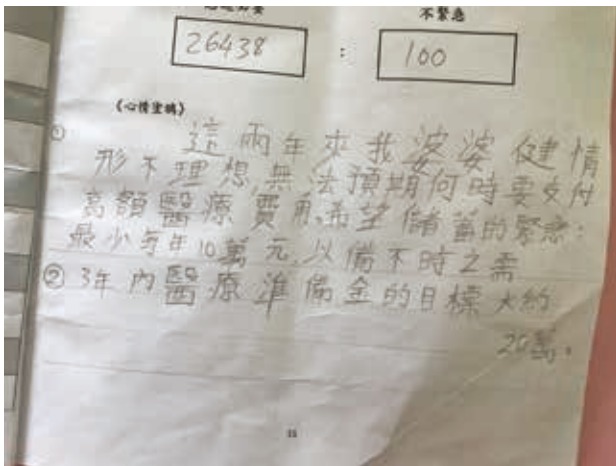 不緊急
26438 : 100
(心情塗鴉)
① 這兩年來我婆婆健情
形不理想,無法預期何時要支付
高額醫療費用,希望儲蓄的緊急:
最少每年10萬元,以備不時之需
② 3年內醫療準備金的目標大約
20萬。